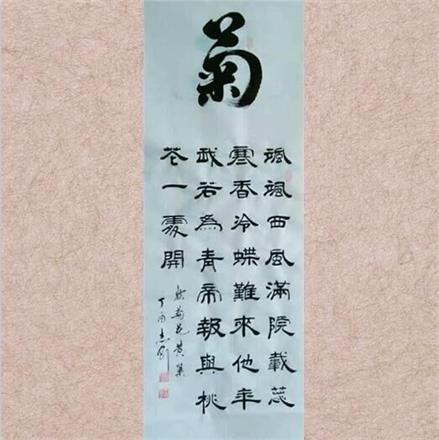 菊
颯颯西風滿院載蕊
寒香冷蝶難來他年
我若為青帝報與桃
花一處開
菊花黃巢
丁酉